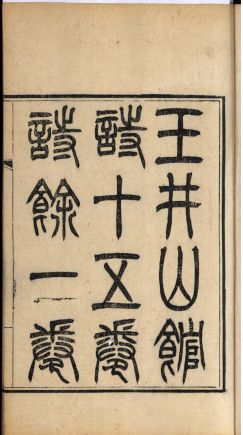 玉井山館
詩十五卷
詩餘一卷